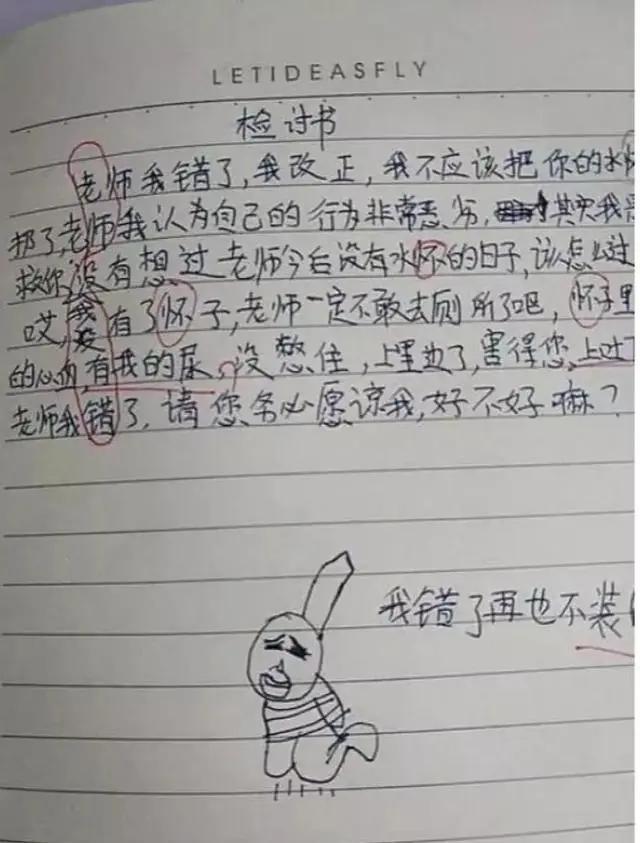 LETIDEASFLY
检讨书
老师我错了,我改正,我不应该把你的水
扔了,老师我认为自己的行为非常恶劣,其实我
救你没有想过老师今后没有水怀的日子,该怎么过
哎,我没有了怀子,老师一定不敢去厕所了吧,怀子里
的心血,有我的尿,没憋住,上里边了,害得您上过
老师我错了,请您务必愿谅我,好不好嘛?
我错了再也不装